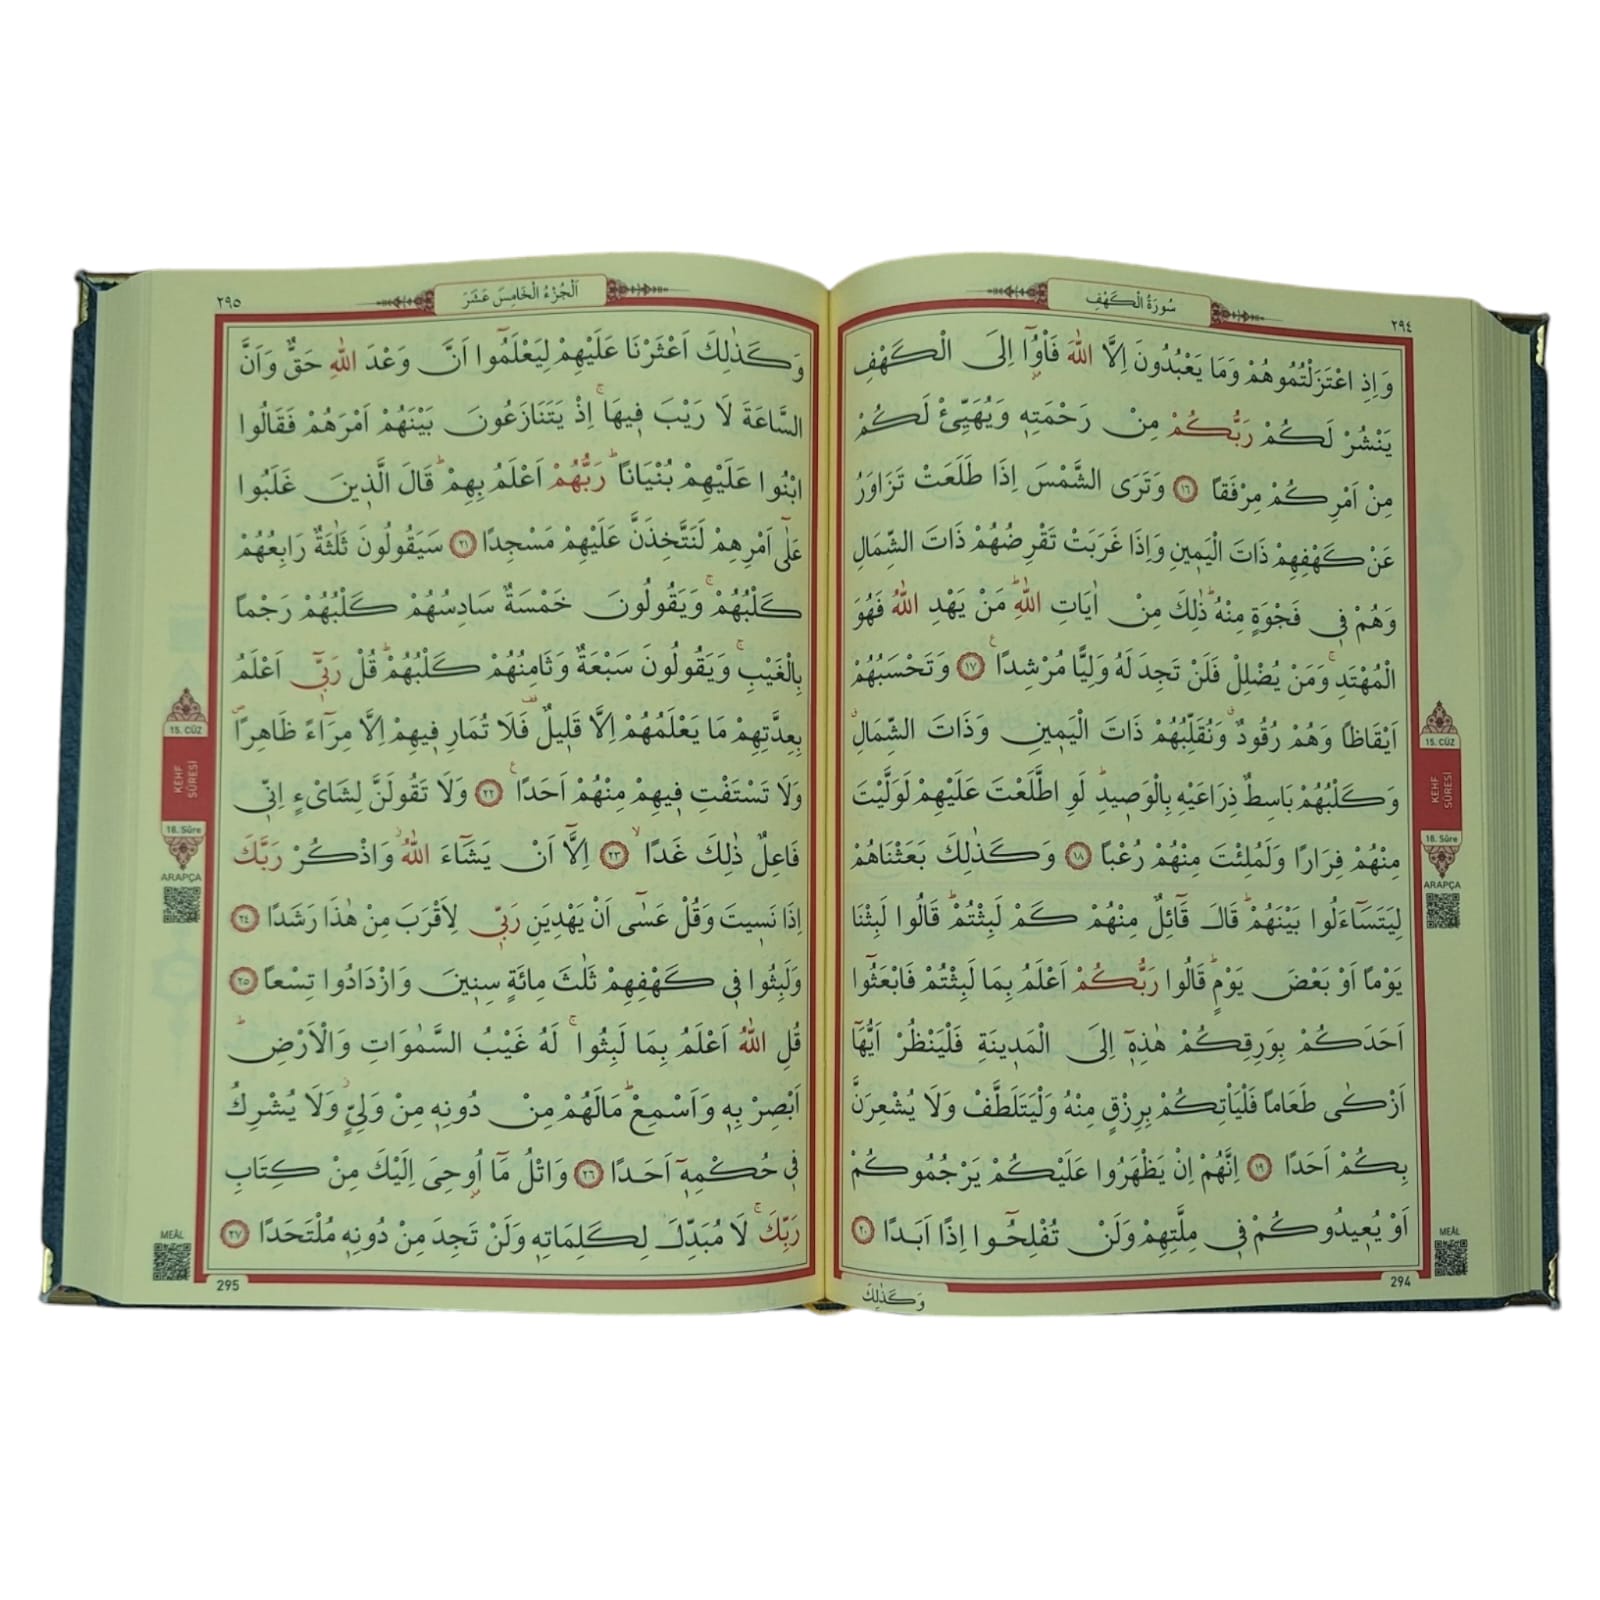 سُورَةُ الْكَهْفِ
٢٩٤
وَاِذِ اعْتَزَلْتُمُوهُمْ وَمَا يَعْبُدُونَ اِلَّا اللّٰهَ فَأْوُٓا اِلَى الْكَهْفِ
يَنْشُرْ لَكُمْ رَبُّكُمْ مِنْ رَحْمَتِهٖ وَيُهَيِّئْ لَكُمْ
مِنْ اَمْرِكُمْ مِرْفَقًا ١٦ وَتَرَى الشَّمْسَ اِذَا طَلَعَتْ تَزَاوَرُ
عَنْ كَهْفِهِمْ ذَاتَ الْيَمٖينِ وَاِذَا غَرَبَتْ تَقْرِضُهُمْ ذَاتَ الشِّمَالِ
وَهُمْ فٖي فَجْوَةٍ مِنْهُؕ ذٰلِكَ مِنْ اٰيَاتِ اللّٰهِؕ مَنْ يَهْدِ اللّٰهُ فَهُوَ
الْمُهْتَدِۚ وَمَنْ يُضْلِلْ فَلَنْ تَجِدَ لَهُ وَلِيًّا مُرْشِدًا ١٧ وَتَحْسَبُهُمْ
اَيْقَاظًا وَهُمْ رُقُودٌۗ وَنُقَلِّبُهُمْ ذَاتَ الْيَمٖينِ وَذَاتَ الشِّمَالِۗ
وَكَلْبُهُمْ بَاسِطٌ ذِرَاعَيْهِ بِالْوَصٖيدِؕ لَوِ اطَّلَعْتَ عَلَيْهِمْ لَوَلَّيْتَ
مِنْهُمْ فِرَارًا وَلَمُلِئْتَ مِنْهُمْ رُعْبًا ١٨ وَكَذٰلِكَ بَعَثْنَاهُمْ
لِيَتَسَآءَلُوا بَيْنَهُمْؕ قَالَ قَآئِلٌ مِنْهُمْ كَمْ لَبِثْتُمْؕ قَالُوا لَبِثْنَا
يَوْمًا اَوْ بَعْضَ يَوْمٍؕ قَالُوا رَبُّكُمْ اَعْلَمُ بِمَا لَبِثْتُمْ فَابْعَثُٓوا
اَحَدَكُمْ بِوَرِقِكُمْ هٰذِهٖٓ اِلَى الْمَدٖينَةِ فَلْيَنْظُرْ اَيُّهَٓا
اَزْكٰى طَعَامًا فَلْيَأْتِكُمْ بِرِزْقٍ مِنْهُ وَلْيَتَلَطَّفْ وَلَا يُشْعِرَنَّ
بِكُمْ اَحَدًا ١٩ اِنَّهُمْ اِنْ يَظْهَرُوا عَلَيْكُمْ يَرْجُمُوكُمْ
اَوْ يُعٖيدُوكُمْ فٖي مِلَّتِهِمْ وَلَنْ تُفْلِحُٓوا اِذًا اَبَدًا ٢٠
294
وَكَذٰلِكَ
15. CÜZ
KEHF SÛRESİ
18. Sûre
ARAPÇA
MEÂL
اَلْجُزْءُ الْخَامِسَ عَشَرَ
٢٩٥
وَكَذٰلِكَ اَعْثَرْنَا عَلَيْهِمْ لِيَعْلَمُٓوا اَنَّ وَعْدَ اللّٰهِ حَقٌّ وَاَنَّ
السَّاعَةَ لَا رَيْبَ فٖيهَاۚ اِذْ يَتَنَازَعُونَ بَيْنَهُمْ اَمْرَهُمْ فَقَالُوا
ابْنُوا عَلَيْهِمْ بُنْيَانًاؕ رَبُّهُمْ اَعْلَمُ بِهِمْؕ قَالَ الَّذٖينَ غَلَبُوا
عَلٰٓى اَمْرِهِمْ لَنَتَّخِذَنَّ عَلَيْهِمْ مَسْجِدًا ٢١ سَيَقُولُونَ ثَلٰثَةٌ رَابِعُهُمْ
كَلْبُهُمْۚ وَيَقُولُونَ خَمْسَةٌ سَادِسُهُمْ كَلْبُهُمْ رَجْمًا
بِالْغَيْبِۚ وَيَقُولُونَ سَبْعَةٌ وَثَامِنُهُمْ كَلْبُهُمْؕ قُلْ رَبّٖٓي اَعْلَمُ
بِعِدَّتِهِمْ مَا يَعْلَمُهُمْ اِلَّا قَلٖيلٌ فَلَا تُمَارِ فٖيهِمْ اِلَّا مِرَٓاءً ظَاهِرًا
وَلَا تَسْتَفْتِ فٖيهِمْ مِنْهُمْ اَحَدًا ٢٢ وَلَا تَقُولَنَّ لِشَايْءٍ اِنّٖي
فَاعِلٌ ذٰلِكَ غَدًا ٢٣ اِلَّٓا اَنْ يَشَٓاءَ اللّٰهُ وَاذْكُرْ رَبَّكَ
اِذَا نَسٖيتَ وَقُلْ عَسٰٓى اَنْ يَهْدِيَنِ رَبّٖي لِاَقْرَبَ مِنْ هٰذَا رَشَدًا ٢٤
وَلَبِثُوا فٖي كَهْفِهِمْ ثَلٰثَ مِائَةٍ سِنٖينَ وَازْدَادُوا تِسْعًا ٢٥
قُلِ اللّٰهُ اَعْلَمُ بِمَا لَبِثُواۚ لَهُ غَيْبُ السَّمٰوَاتِ وَالْاَرْضِؕ
اَبْصِرْ بِهٖ وَاَسْمِعْؕ مَا لَهُمْ مِنْ دُونِهٖ مِنْ وَلِيٍّ وَلَا يُشْرِكُ
فٖي حُكْمِهٖٓ اَحَدًا ٢٦ وَاتْلُ مَٓا اُو۫حِيَ اِلَيْكَ مِنْ كِتَابِ
رَبِّكَۚ لَا مُبَدِّلَ لِكَلِمَاتِهٖ وَلَنْ تَجِدَ مِنْ دُونِهٖ مُلْتَحَدًا ٢٧
295
15. CÜZ
KEHF SÛRESİ
18. Sûre
ARAPÇA
MEÂL